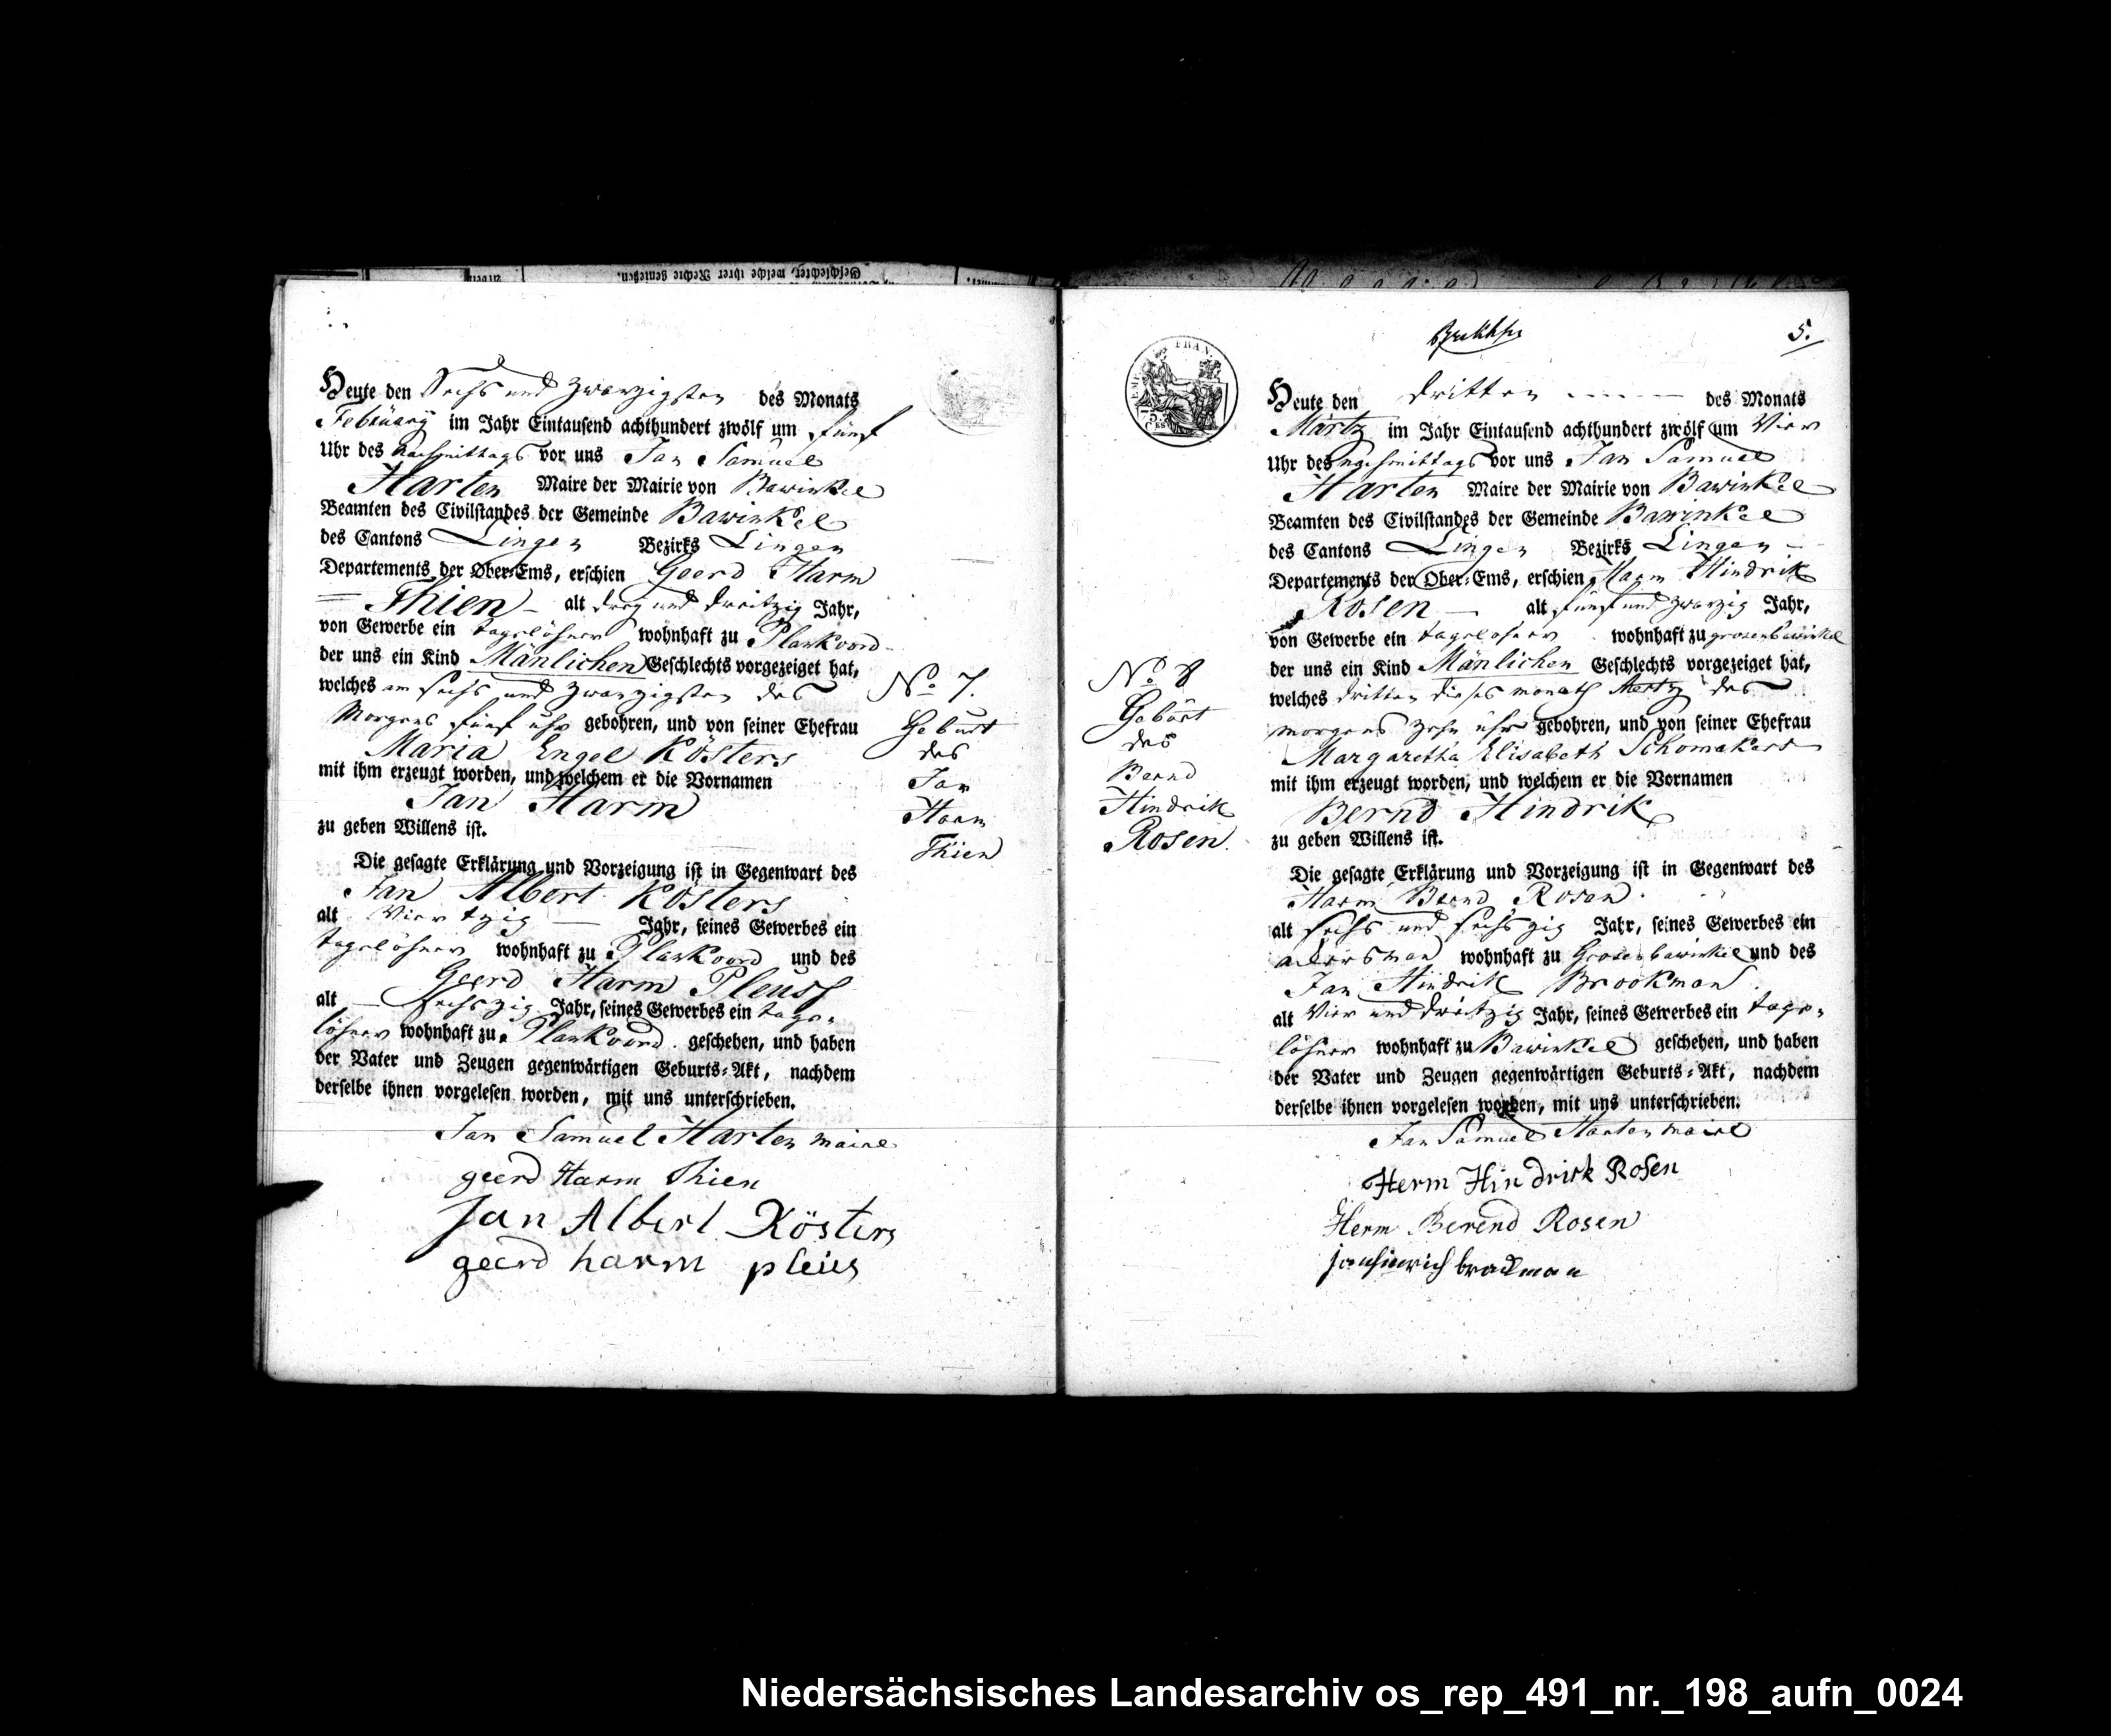 Geschlechter, welche ihrer Rechte genießen.
Heute den Sechs und zwanzigsten des Monats
Februarÿ im Jahr Eintausend achthundert zwölf um fünf
Uhr des nachmittags vor uns Jan Samuel
Harten Maire der Mairie von Bawinkel
Beamten des Civilstandes der Gemeinde Bawinkel
des Cantons Lingen Bezirks Lingen
Departements der Ober-Ems, erschien Geerd Harm
Thien alt dreÿ und dreitzig Jahr,
von Gewerbe ein tagelöhner wohnhaft zu Plankoord
der uns ein Kind Mänlichen Geschlechts vorgezeiget hat,
welches am sechs und zwanzigsten des
Morgens fünf uhr gebohren, und von seiner Ehefrau
Maria Engel Kösters
mit ihm erzeugt worden, und welchem er die Vornamen
Jan Harm
zu geben Willens ist.
Die gesagte Erklärung und Vorzeigung ist in Gegenwart des
Jan Albert Kösters
alt Viertzig Jahr, seines Gewerbes ein
tagelöhner wohnhaft zu Plankoord und des
Geerd Harm Pleuss
alt sechszig Jahr, seines Gewerbes ein tage-
löhner wohnhaft zu Plankoord geschehen, und haben
der Vater und Zeugen gegenwärtigen Geburts-Akt, nachdem
derselbe ihnen vorgelesen worden, mit uns unterschrieben.
Jan Samuel Harten maire
geerd Harm Thien
Jan Albert Kösters
geerd harm pleus
No 7.
Geburt
des
Jan
Harm
Thien
5.
EMP. FRAN.
75
CES
No 8
Geburt
des
Bernd
Hindrik
Rosen.
Heute den dritten des Monats
Märtz im Jahr Eintausend achthundert zwölf um Vier
Uhr des nachmittags vor uns Jan Samuel
Harten Maire der Mairie von Bawinkel
Beamten des Civilstandes der Gemeinde Bawinkel
des Cantons Lingen Bezirks Lingen
Departements der Ober-Ems, erschien Harm Hindrik
Rosen alt fünf und zwanzig Jahr,
von Gewerbe ein tagelöhner wohnhaft zu grosenbawinkel
der uns ein Kind Mänlichen Geschlechts vorgezeiget hat,
welches dritten dieses monath Mertz des
morgens zehn uhr gebohren, und von seiner Ehefrau
Margaretha Elisabeth Schomakers
mit ihm erzeugt worden, und welchem er die Vornamen
Bernd Hindrik
zu geben Willens ist.
Die gesagte Erklärung und Vorzeigung ist in Gegenwart des
Harm Bernd Rosen
alt sechs und sechszig Jahr, seines Gewerbes ein
ackersman wohnhaft zu Grosenbawinkel und des
Jan Hindrik Brookman
alt Vier und dreitzig Jahr, seines Gewerbes ein tage-
löhner wohnhaft zu Bawinkel geschehen, und haben
der Vater und Zeugen gegenwärtigen Geburts-Akt, nachdem
derselbe ihnen vorgelesen worden, mit uns unterschrieben.
Jan Samuel Harten maire
Herm Hindrik Rosen
Herm Berend Rosen
janhinrich brockman
Niedersächsisches Landesarchiv os_rep_491_nr._198_aufn_0024